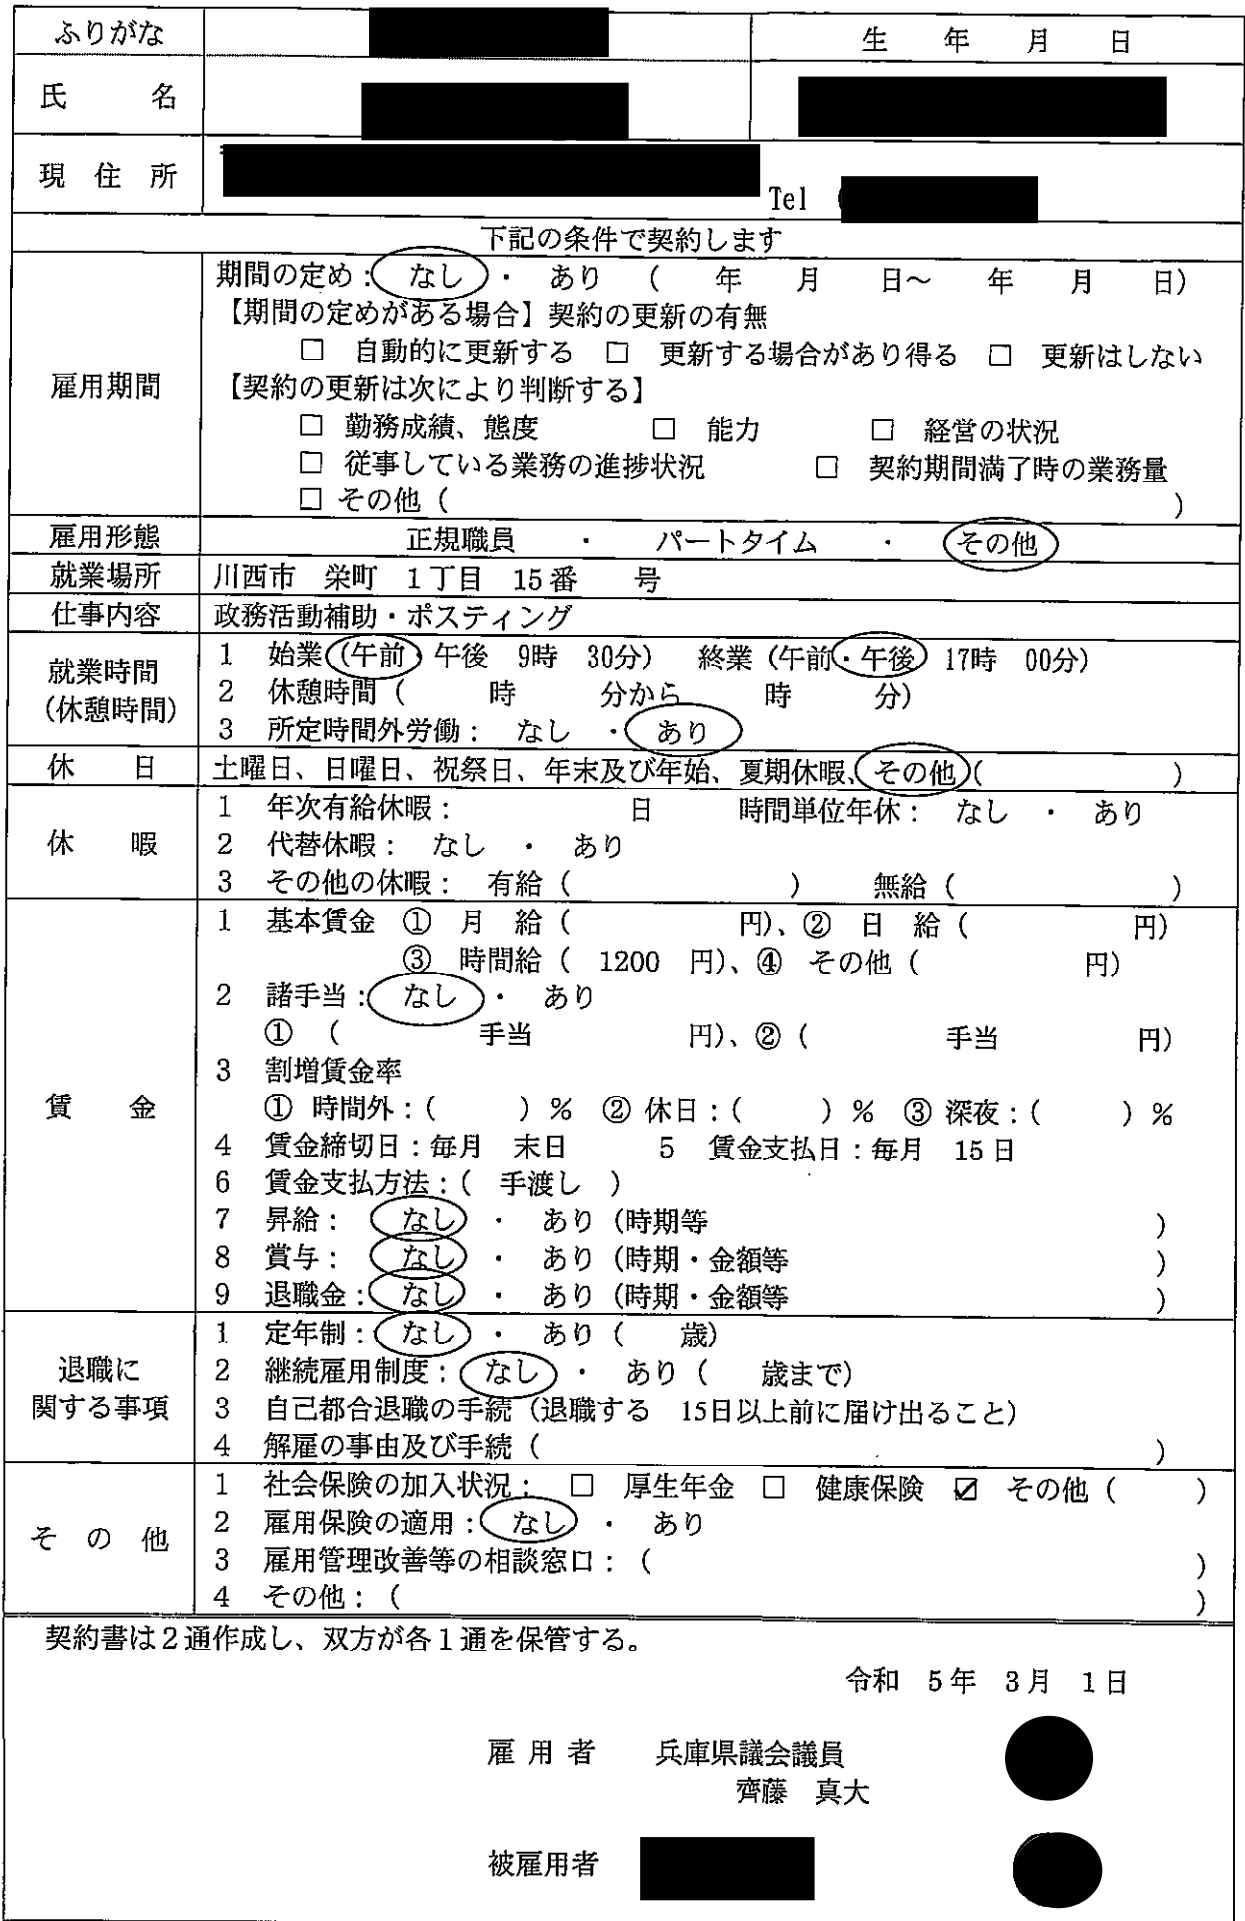 ふりがな
生 年 月 日
氏 名
現 住 所
Tel (
下記の条件で契約します
雇用期間
期間の定め: なし ・ あり ( 年 月 日～ 年 月 日)
【期間の定めがある場合】契約の更新の有無
□ 自動的に更新する □ 更新する場合があり得る □ 更新はしない
【契約の更新は次により判断する】
□ 勤務成績、態度 □ 能力 □ 経営の状況
□ 従事している業務の進捗状況 □ 契約期間満了時の業務量
□ その他 ( )
雇用形態 正規職員 ・ パートタイム ・ その他
就業場所 川西市 栄町 1丁目 15番 号
仕事内容 政務活動補助・ポスティング
就業時間
(休憩時間)
1 始業 (午前 午後 9時 30分) 終業 (午前・午後 17時 00分)
2 休憩時間 ( 時 分から 時 分)
3 所定時間外労働: なし ・ あり
休 日 土曜日、日曜日、祝祭日、年末及び年始、夏期休暇、その他 ( )
休 暇
1 年次有給休暇: 日 時間単位年休: なし ・ あり
2 代替休暇: なし ・ あり
3 その他の休暇: 有給 ( ) 無給 ( )
賃 金
1 基本賃金 ① 月 給 ( 円)、② 日 給 ( 円)
③ 時間給 ( 1200 円)、④ その他 ( 円)
2 諸手当: なし ・ あり
① ( 手当 円)、② ( 手当 円)
3 割増賃金率
① 時間外:( ) % ② 休日:( ) % ③ 深夜:( ) %
4 賃金締切日:毎月 末日 5 賃金支払日:毎月 15日
6 賃金支払方法:( 手渡し )
7 昇給: なし ・ あり (時期等 )
8 賞与: なし ・ あり (時期・金額等 )
9 退職金: なし ・ あり (時期・金額等 )
退職に
関する事項
1 定年制: なし ・ あり ( 歳)
2 継続雇用制度: なし ・ あり ( 歳まで)
3 自己都合退職の手続 (退職する 15日以上前に届け出ること)
4 解雇の事由及び手続 ( )
そ の 他
1 社会保険の加入状況: □ 厚生年金 □ 健康保険 ☑ その他 ( )
2 雇用保険の適用: なし ・ あり
3 雇用管理改善等の相談窓口: ( )
4 その他: ( )
契約書は2通作成し、双方が各1通を保管する。
令和 5年 3月 1日
雇 用 者 兵庫県議会議員
齊藤 真大
被雇用者